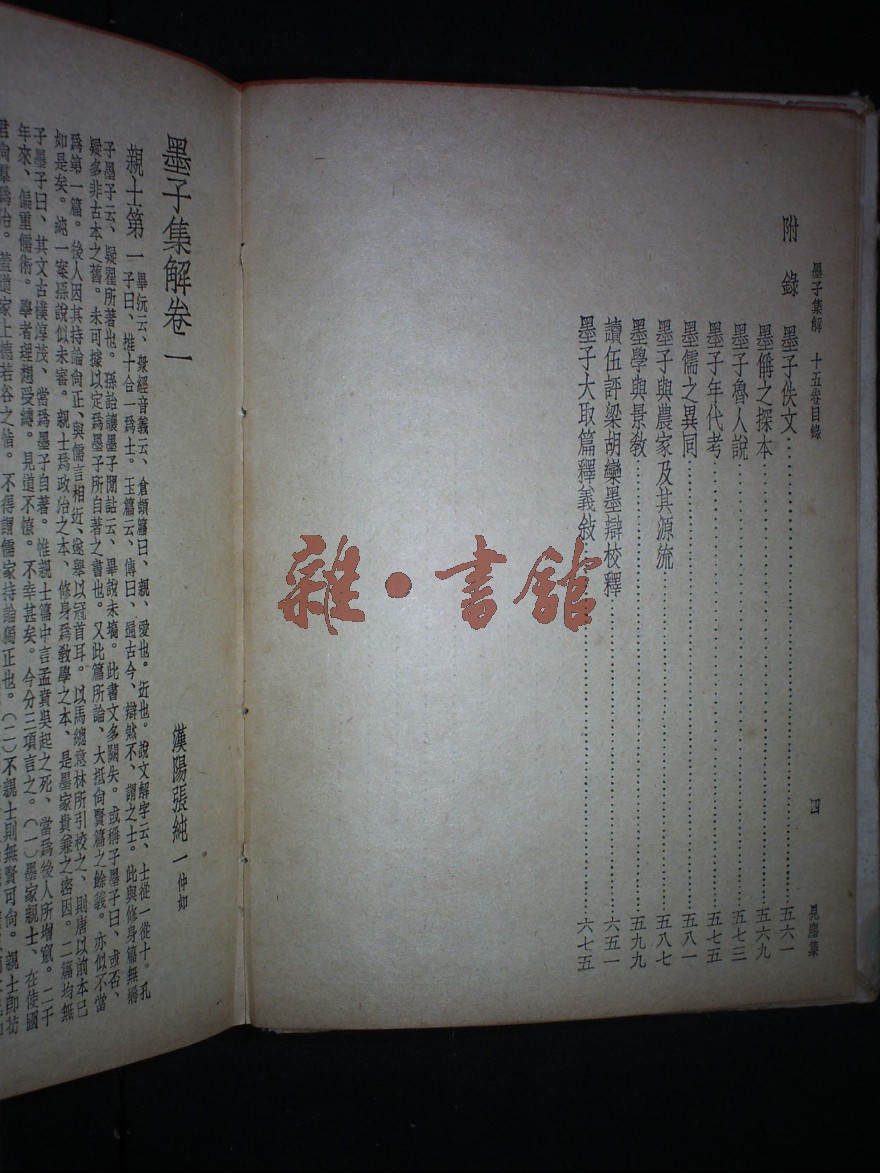 墨子集解　十五卷目錄　四　見塵集
附錄
墨子佚文……五六一
墨儒之探本……五六九
墨子魯人說……五七三
墨子年代考……五七五
墨儒之異同……五八一
墨子與農家及其源流……五八七
墨學與景教……五九九
讀伍評梁胡欒墨辯校釋……六五一
墨子大取篇釋義敍……六七五
雜·書舘
墨子集解卷一
漢陽張純一仲如
親士第一
畢沅云、衆經音義云、倉頡篇曰、親、愛也。近也。說文解字云、士從一從十。孔
子曰、推十合一爲士。玉篇云、傳曰、通古今、辯然不、謂之士。此與修身篇無稱
子墨子云、疑翟所著也。孫詒讓墨子閒詁云、畢說未塙。此書文多闕失。或稱子墨子曰、或否、
疑多非古本之舊。未可據以定爲墨子所自著之書也。又此篇所論、大抵尙賢篇之餘義。亦似不當
爲第一篇。後人因其持論尙正、與儒言相近、遂舉以冠首耳。以馬總意林所引校之、則唐以前本已
如是矣。純一案孫說似未審。親士爲政治之本、修身爲教學之本、是墨家貴兼之密因。二篇均無
子墨子曰、其文古樸淳茂、當爲墨子自著。惟親士篇中言孟賁吳起之死、當爲後人所增竄。二千
年來、偏重儒術。學者理想受縛。見道不憭。不幸甚矣。今分三項言之。(一)墨家親士、在使國
君尙羣爲治。蓋道家上德若谷之恉。不得謂儒家持論獨正也。(二)不親士則無賢可尙。親士卽